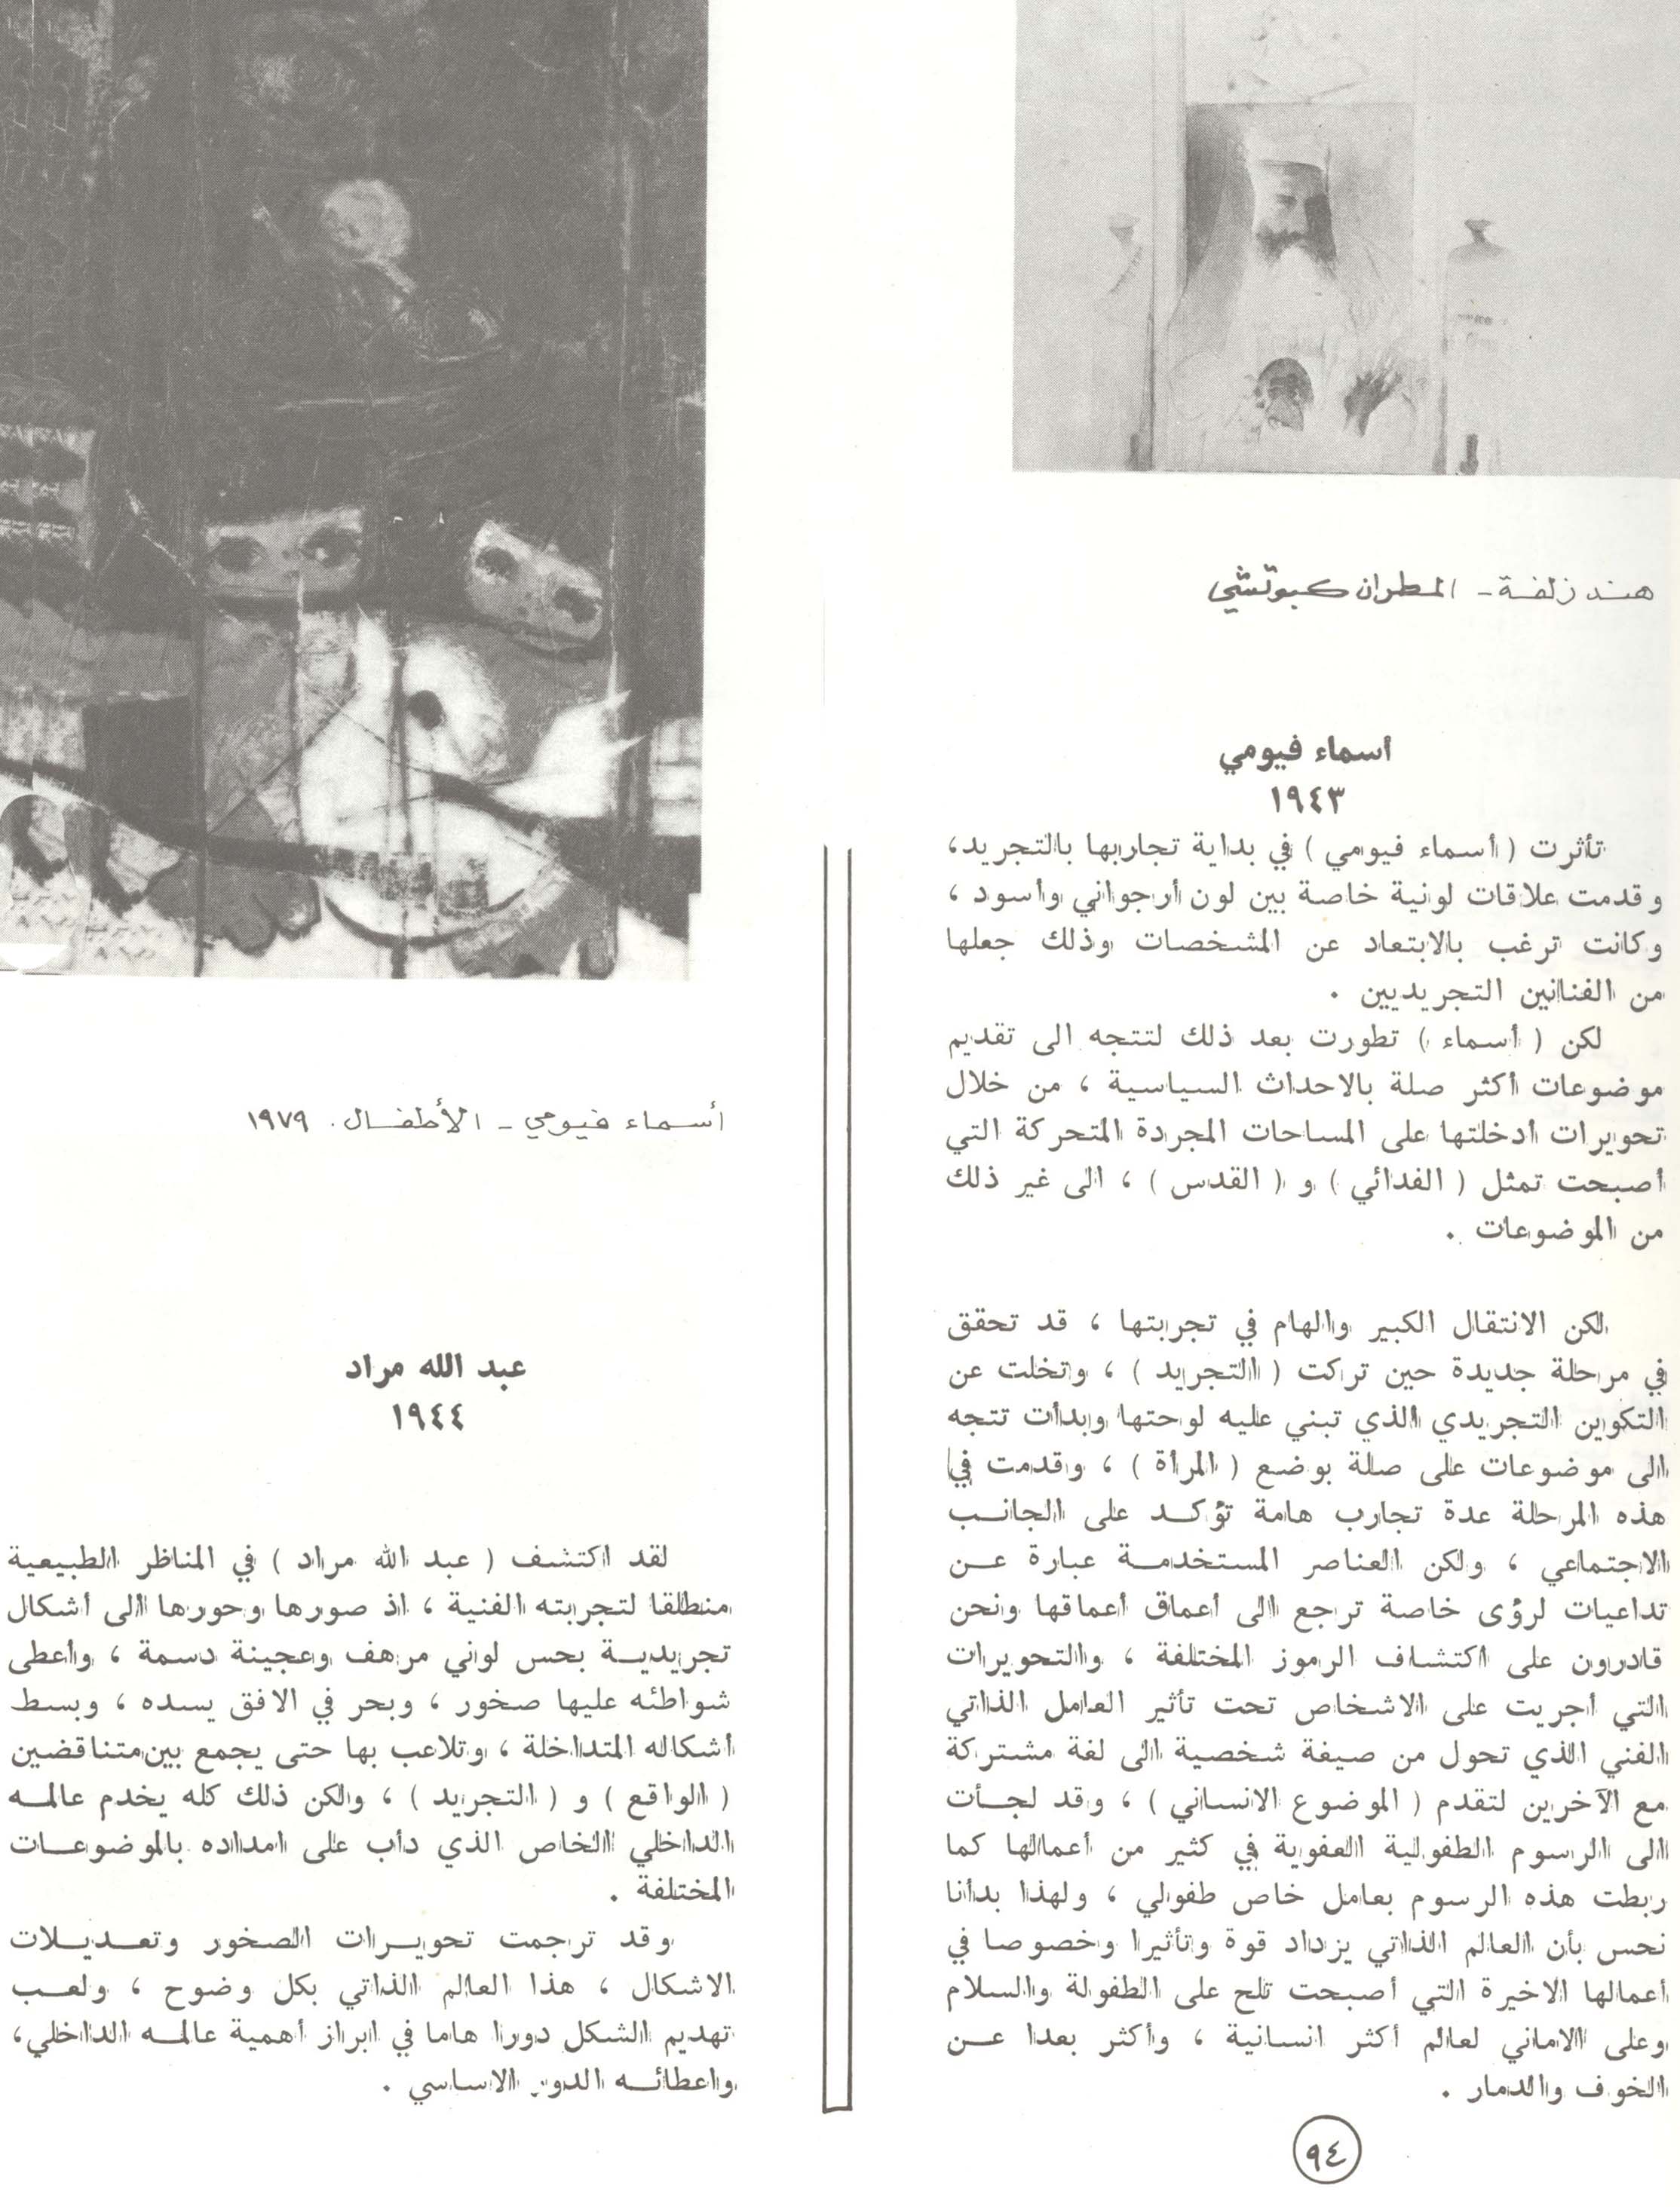 هند زلفة - المطران كبوتشي
أسماء فيومي
١٩٤٣
تأثرت ( أسماء فيومي ) في بداية تجاربها بالتجريد،
وقدمت علاقات لونية خاصة بين لون أرجواني وأسود ،
وكانت ترغب بالابتعاد عن المشخصات وذلك جعلها
من الفنانين التجريديين .
لكن ( أسماء ) تطورت بعد ذلك لتتجه الى تقديم
موضوعات أكثر صلة بالاحداث السياسية ، من خلال
تحويرات ادخلتها على المساحات المجردة المتحركة التي
أصبحت تمثل ( الفدائي ) و ( القدس ) ، الى غير ذلك
من الموضوعات .
لكن الانتقال الكبير والهام في تجربتها ، قد تحقق
في مرحلة جديدة حين تركت ( التجريد ) ، وتخلت عن
التكوين التجريدي الذي تبني عليه لوحتها وبدأت تتجه
الى موضوعات على صلة بوضع ( المرأة ) ، وقدمت في
هذه المرحلة عدة تجارب هامة تؤكد على الجانب
الاجتماعي ، ولكن العناصر المستخدمة عبارة عن
تداعيات لرؤى خاصة ترجع الى أعماق أعماقها ونحن
قادرون على اكتشاف الرموز المختلفة ، والتحويرات
التي أجريت على الاشخاص تحت تأثير العامل الذاتي
الفني الذي تحول من صيغة شخصية الى لغة مشتركة
مع الآخرين لتقدم ( الموضوع الانساني ) ، وقد لجأت
الى الرسوم الطفولية العفوية في كثير من أعمالها كما
ربطت هذه الرسوم بعامل خاص طفولي ، ولهذا بدأنا
نحس بأن العالم الذاتي يزداد قوة وتأثيرا وخصوصا في
أعمالها الاخيرة التي أصبحت تلح على الطفولة والسلام
وعلى الاماني لعالم أكثر انسانية ، وأكثر بعدا عن
الخوف والدمار .
أسماء فيومي - الأطفال . ١٩٧٩
عبد الله مراد
١٩٤٤
لقد اكتشف ( عبد الله مراد ) في المناظر الطبيعية
منطلقا لتجربته الفنية ، اذ صورها وحورها الى أشكال
تجريدية بحس لوني مرهف وعجينة دسمة ، واعطى
شواطئه عليها صخور ، وبحر في الافق يسده ، وبسط
أشكاله المتداخلة ، وتلاعب بها حتى يجمع بين متناقضين
( الواقع ) و ( التجريد ) ، ولكن ذلك كله يخدم عالمه
الداخلي الخاص الذي دأب على امداده بالموضوعات
المختلفة .
وقد ترجمت تحويرات الصخور وتعديلات
الاشكال ، هذا العالم الذاتي بكل وضوح ، ولعب
تهديم الشكل دورا هاما في ابراز أهمية عالمه الداخلي،
واعطائه الدور الاساسي .
٩٤